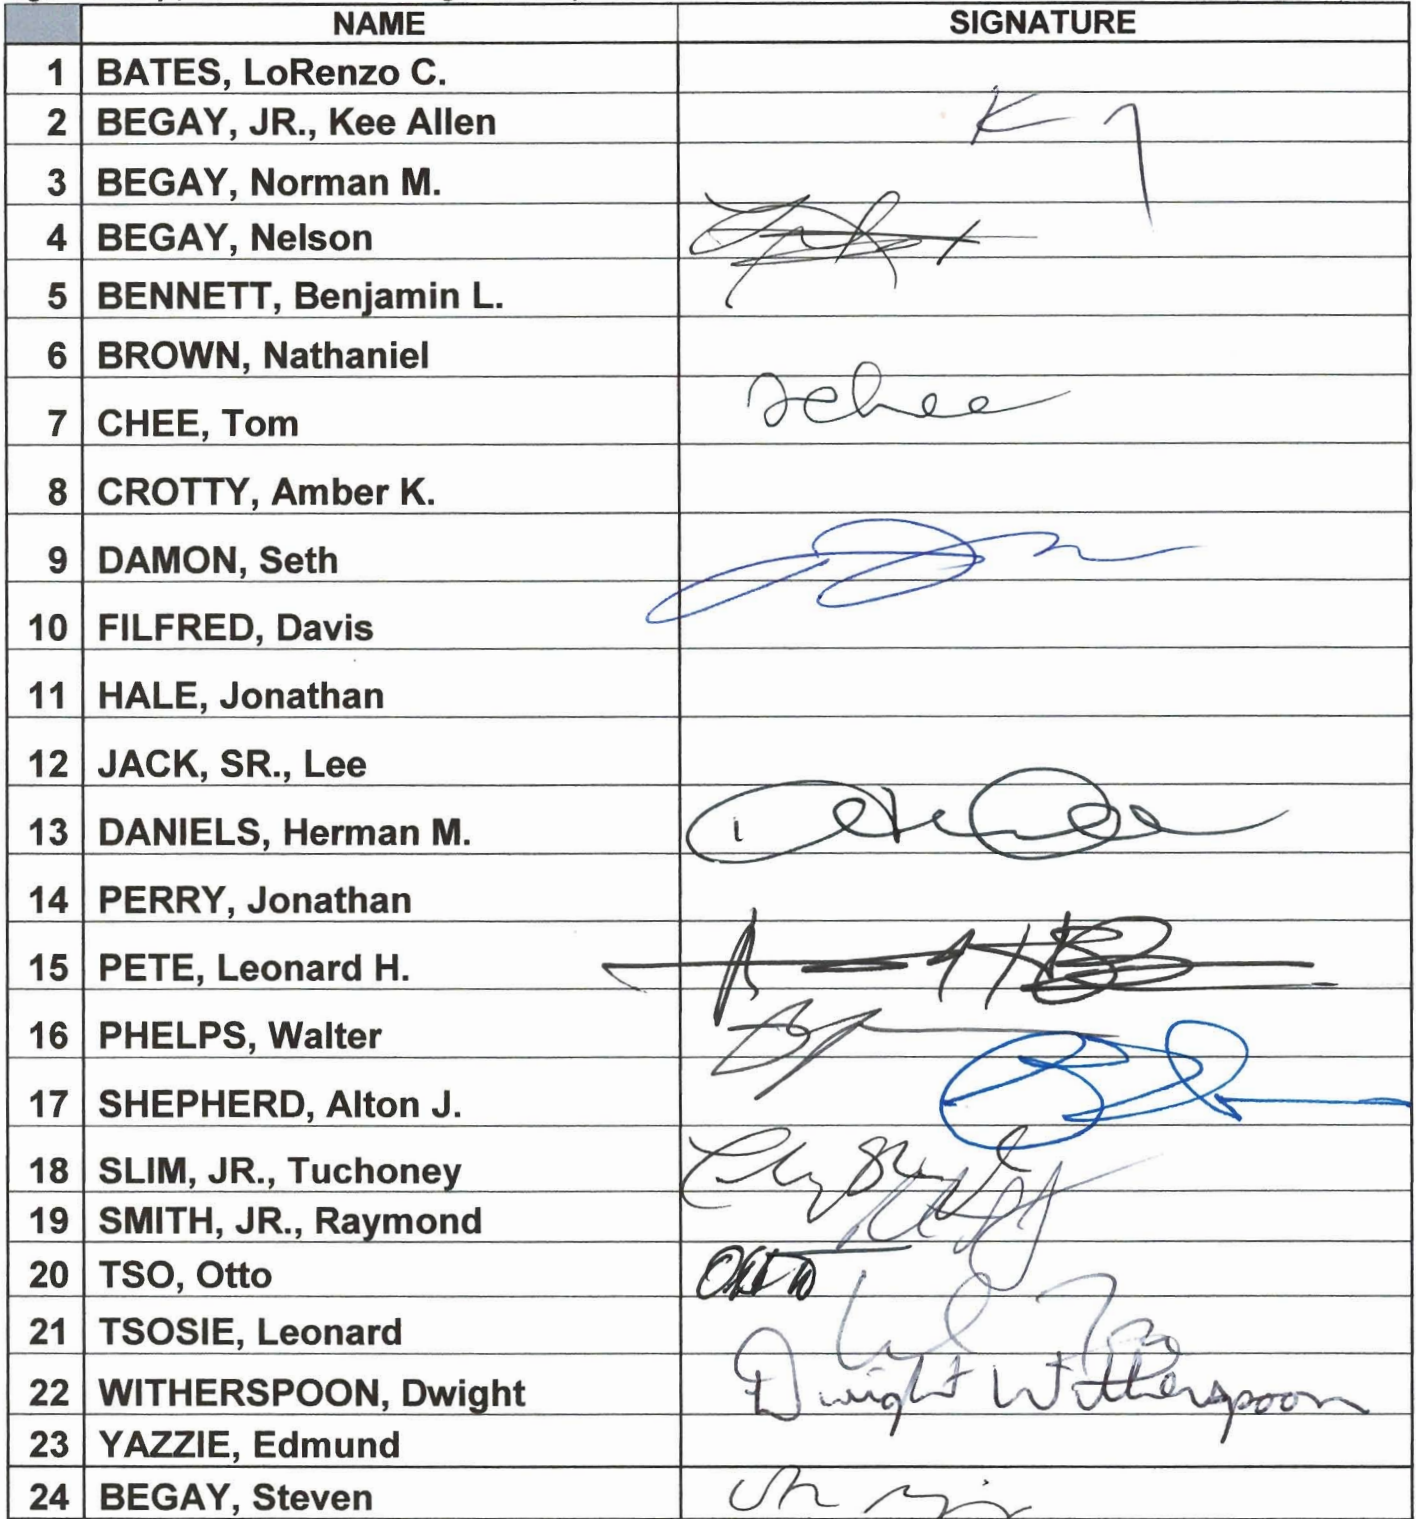 NAME SIGNATURE
1 BATES, LoRenzo C.
2 BEGAY, JR., Kee Allen
3 BEGAY, Norman M.
4 BEGAY, Nelson
5 BENNETT, Benjamin L.
6 BROWN, Nathaniel
7 CHEE, Tom
8 CROTTY, Amber K.
9 DAMON, Seth
10 FILFRED, Davis
11 HALE, Jonathan
12 JACK, SR., Lee
13 DANIELS, Herman M.
14 PERRY, Jonathan
15 PETE, Leonard H.
16 PHELPS, Walter
17 SHEPHERD, Alton J.
18 SLIM, JR., Tuchoney
19 SMITH, JR., Raymond
20 TSO, Otto
21 TSOSIE, Leonard
22 WITHERSPOON, Dwight Dwight Witherspoon
23 YAZZIE, Edmund
24 BEGAY, Steven